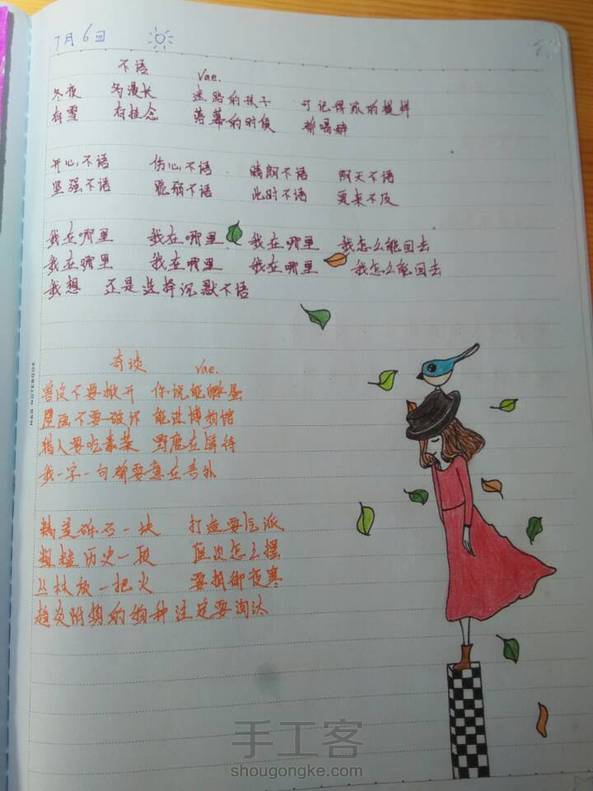 7月6日
不语 Vae.
冬夜 多漫长 迷路的孩子 可记得家的模样
有雪 有挂念 落幕的时候
开心不语 伤心不语 晴朗不语 阴天不语
坚强不语 脆弱不语 此时不语 更来不及
我在哪里 我在哪里 我在哪里 我怎么能回去
我在哪里 我在哪里 我在哪里 我怎么能回去
我想 还是选择沉默不语
M&G NOTEBOOK
奇谈 Vae.
兽皮不要掀开 你说能孵蛋
壁画不要破坏 能进博物馆
猎人要吃素菜 野鹿在
我一字一句都要意在言外
裁美砾石一块 打造要气派
粗糙历史一段 座次怎么摆
丛林放一把火 要抵御夜寒
趋炎附势的物种注定要淘汰
手工客
shougongke.com